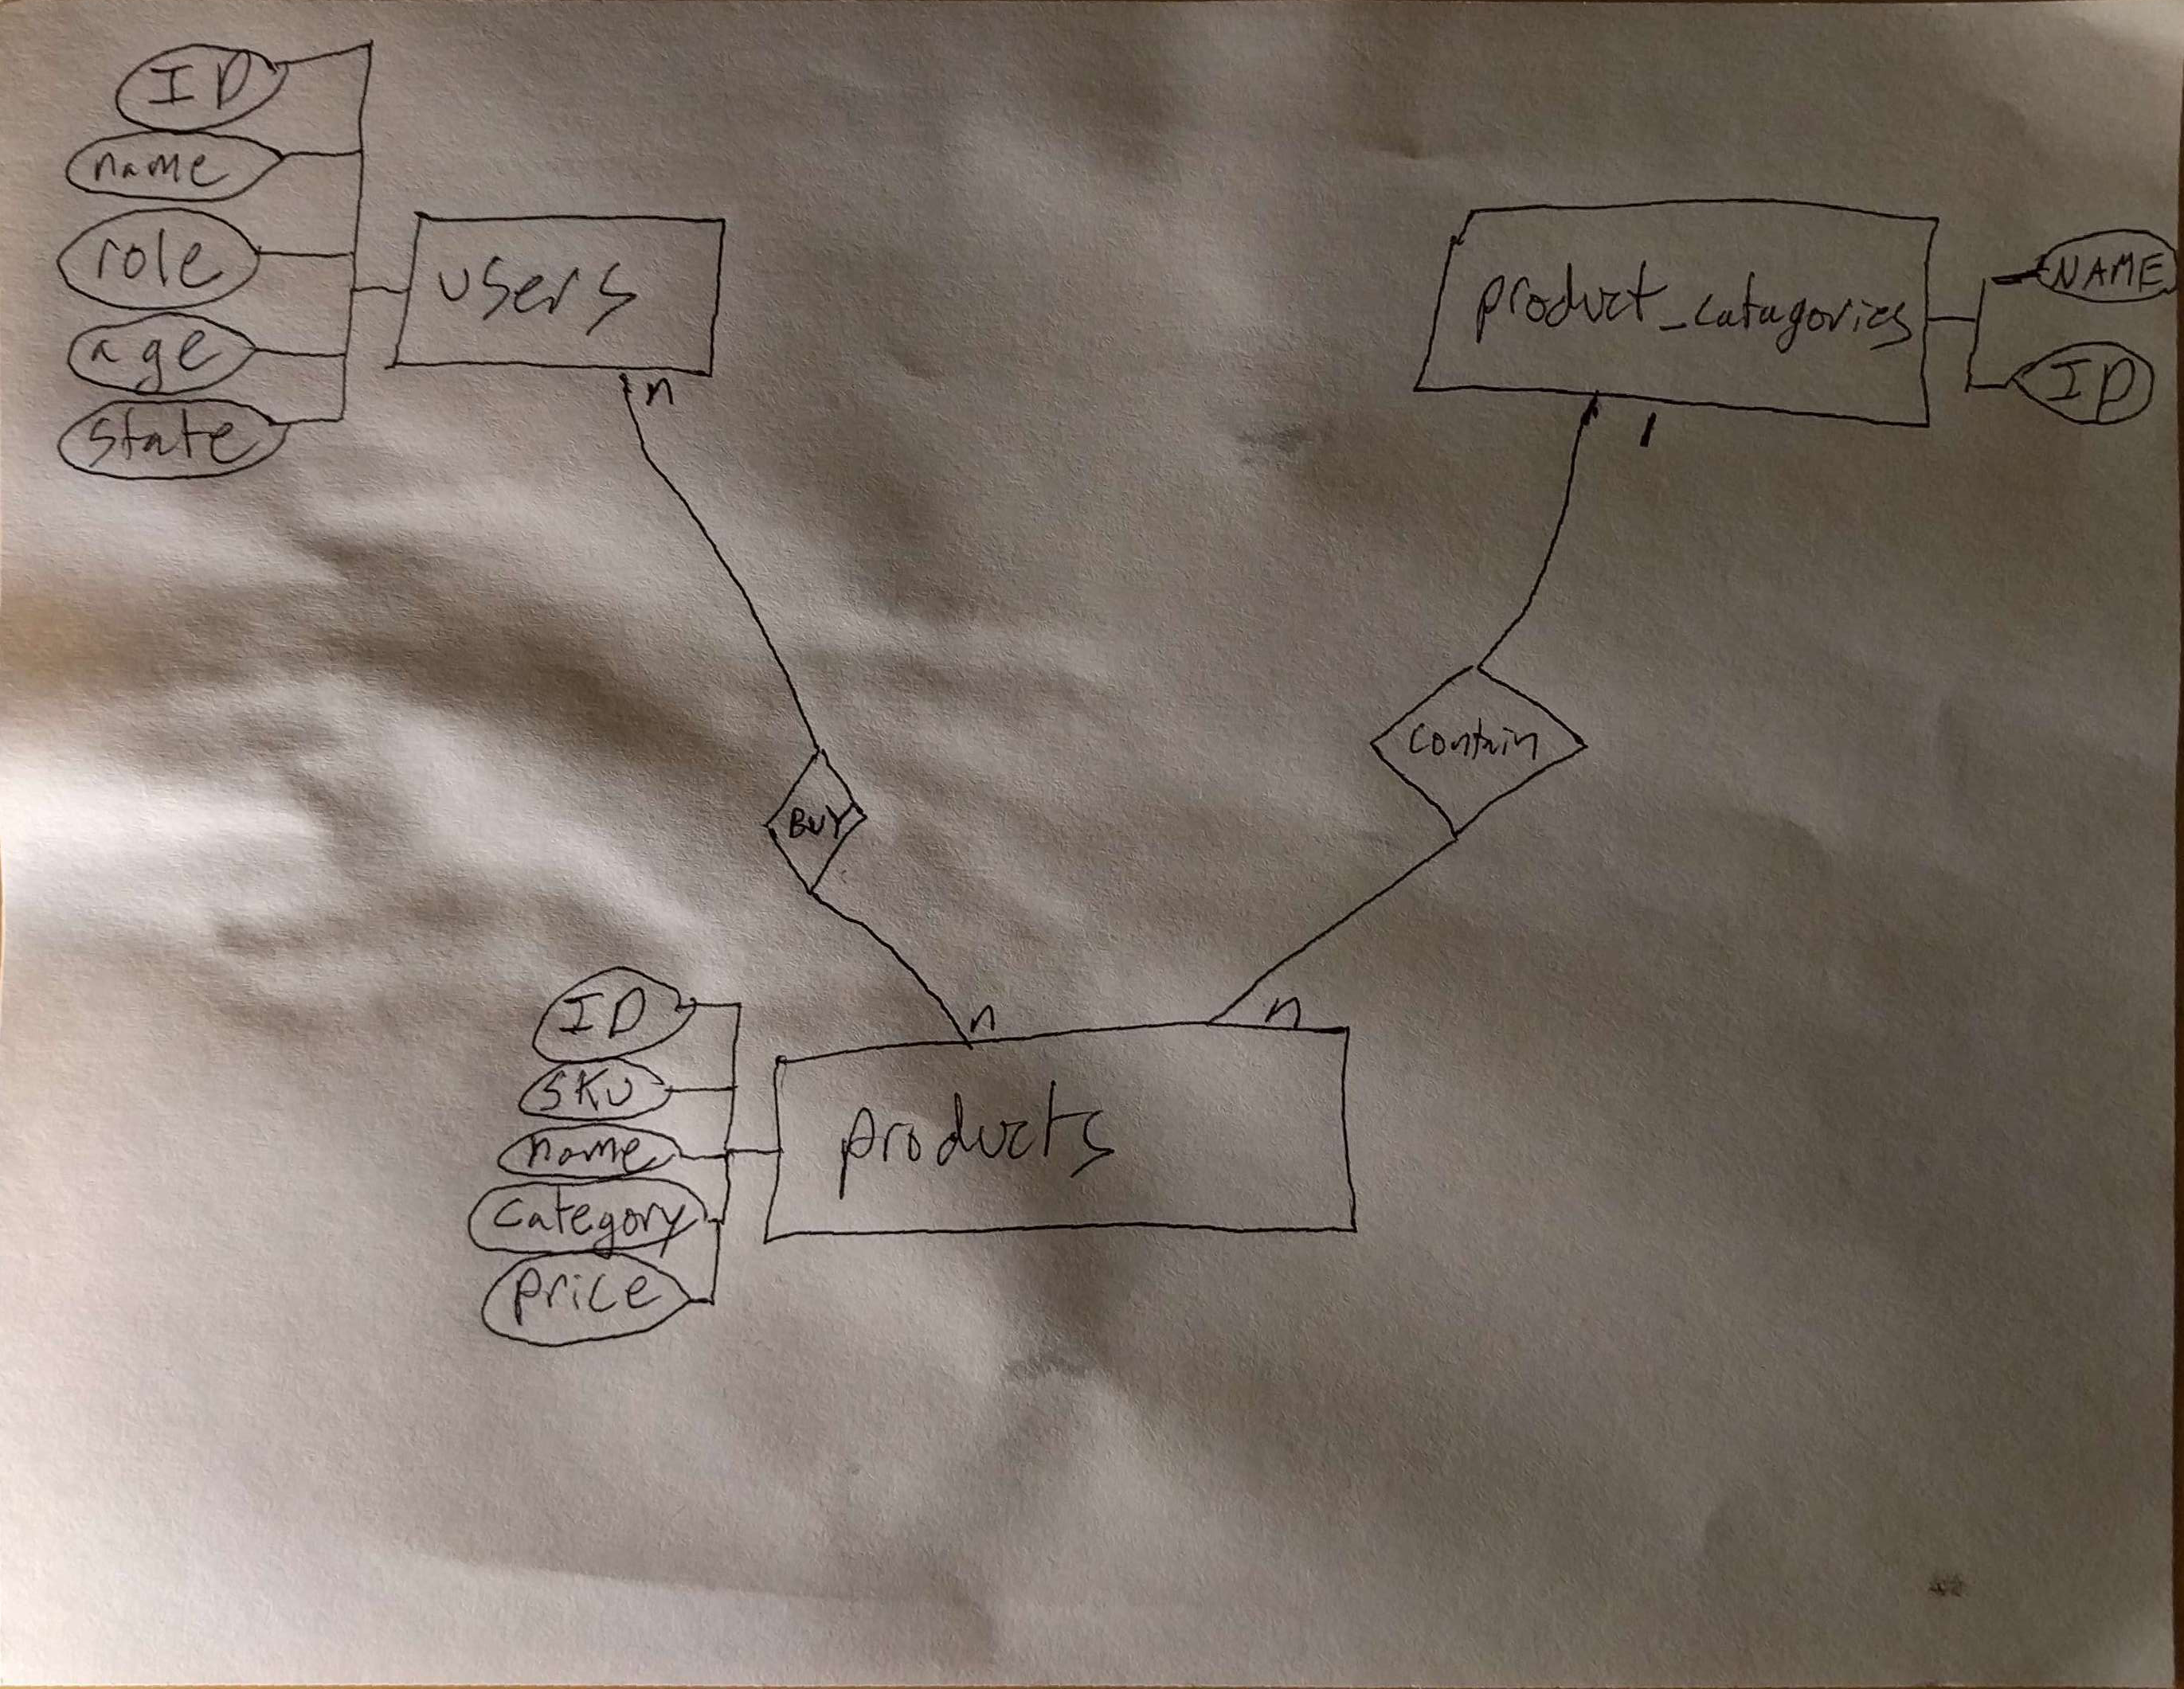 ID
name
role
age
state
users
n
product_catagories
NAME
ID
1
BUY
contain
n
n
ID
SKU
name
category
price
products